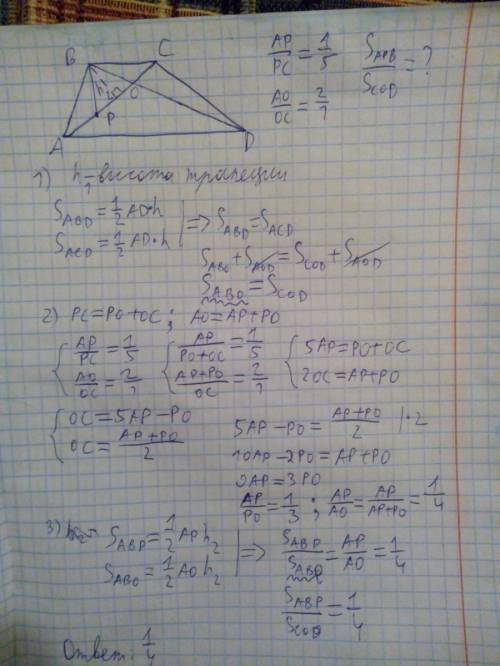 B C
O
h₂
P
A D
AP/PC = 1/5
S_APB/S_COD = ?
AO/OC = 2/1
1) h - высота трапеции
S_ABD = 1/2 AD·h
S_ACD = 1/2 AD·h | => S_ABD = S_ACD
S_ABO + S_AOD = S_COD + S_AOD
S_ABO = S_COD
2) PC = PO + OC ; AO = AP + PO
{ AP/PC = 1/5 { AP/(PO+OC) = 1/5 { 5AP = PO + OC
{ AO/OC = 2/1 { (AP+PO)/OC = 2/1 { 2OC = AP + PO
{ OC = 5AP - PO
{ OC = (AP + PO)/2
5AP - PO = (AP + PO)/2 | · 2
10AP - 2PO = AP + PO
9AP = 3PO
AP/PO = 1/3 ; AP/AO = AP/(AP+PO) = 1/4
3) S_ABP = 1/2 AP h₂
S_ABO = 1/2 AO h₂ | => S_ABP/S_ABO = AP/AO = 1/4
S_ABP/S_COD = 1/4
Ответ: 1/4